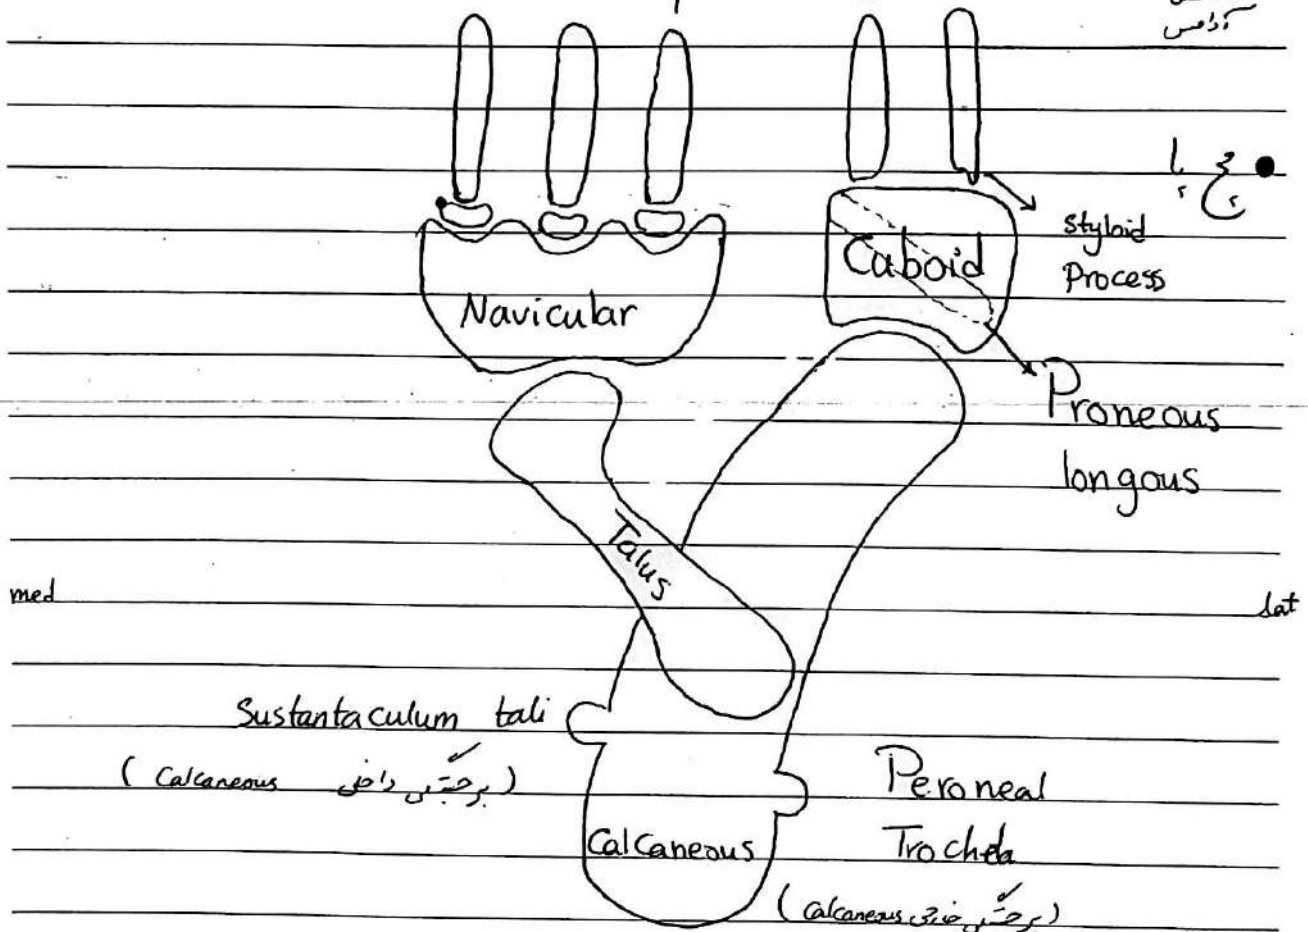 آدامس
مچ پا
styloid
Process
Cuboid
Navicular
Proneous
longous
Talus
med
lat
Sustantaculum tali
(برجستگی داخلی Calcaneous)
Peroneal
Trochela
Calcaneous
(برجستگی خارجی Calcaneous)